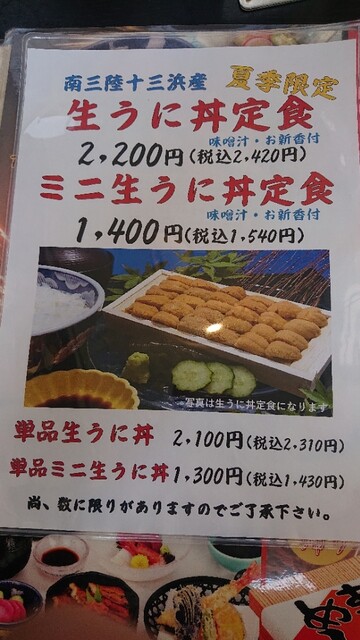 南三陸十三浜産 夏季限定
生うに丼定食
味噌汁・お新香付
2,200円(税込2,420円)
ミニ生うに丼定食
味噌汁・お新香付
1,400円(税込1,540円)
写真は生うに丼定食になります
単品生うに丼 2,100円(税込2,310円)
単品ミニ生うに丼 1,300円(税込1,430円)
尚、数に限りがありますのでご了承下さい。